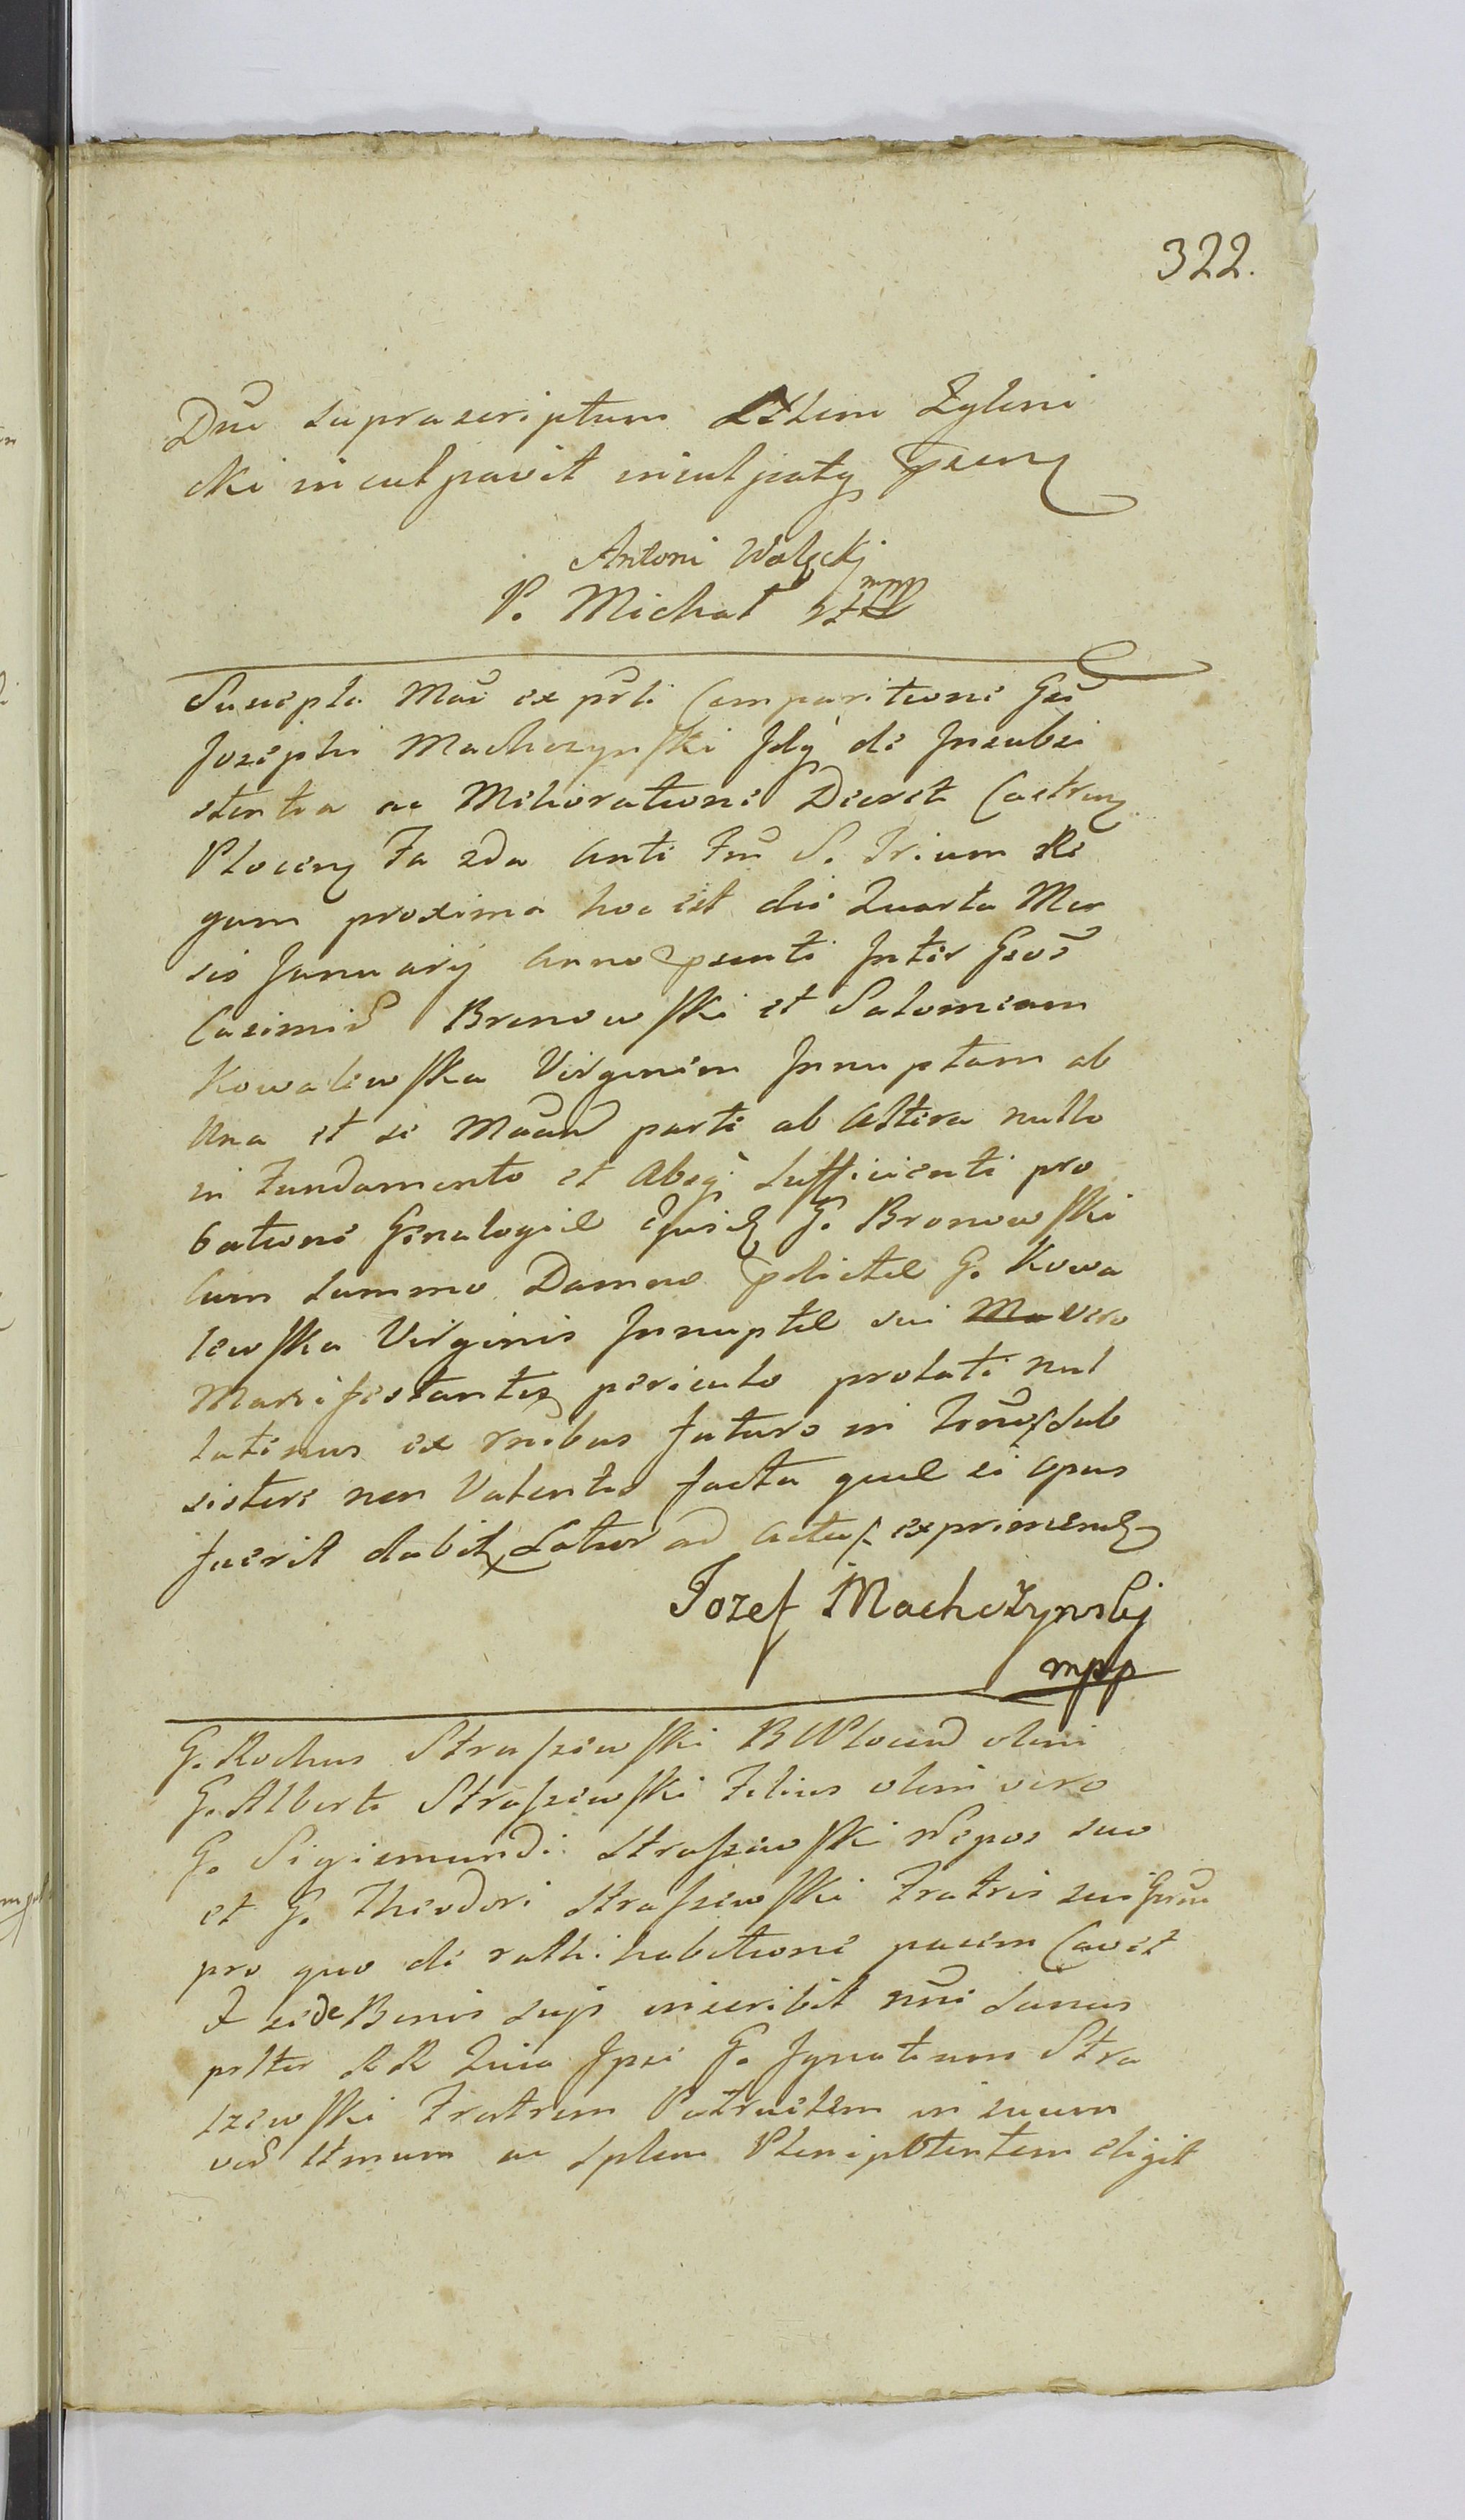 322.
Dni supra scriptum Zyleni
cki inculpavit inculpatq psenq
Antoni Walęckj
P. Michał mpp
Suscepta Mani ex psti Comparitione Gsi
Josephi Machczynski Jdq de Insubsi
stentia ac Melioratione Decreti Castren
Plocen Fa 2da Anti Fm S. Trium Re
gum proxima hoc est die Quarta Men
sis January Anno psenti Inter Gsos
Casimir Bronowski et Salomeam
Kowalewska Virginem Innuptam ab
Una et se Mand parte ab Altera nullo
in Fundamento et Absq sufficienti pro
batione Genalogiae G. Bronowski
Cum summo Damno pdictae G. Kowa
lewska Virginis Innuptae sui vero
Manifestantis periculo prolati nul
latenus ex rnibus futuro in sub
sistere non Valentis facta quae si opus
fuerit dabit Latior ad Acta exprimend
Jozef Machczynskj
mpp
G. Rochus Straszewski olim
G. Alberti Straszewski Filius olim vero
G. Sigismundi Straszewski Nepos suo
et G. Theodori Straszewski Fratris sui Germ
pro quo de rathihabitione pacem Cavet
Bonis sujs inscribit nni sanus
Ipse G. Ignatium Stra
szewski Fratrem Patruelem in suum
ac splem Plenipotentem eligit